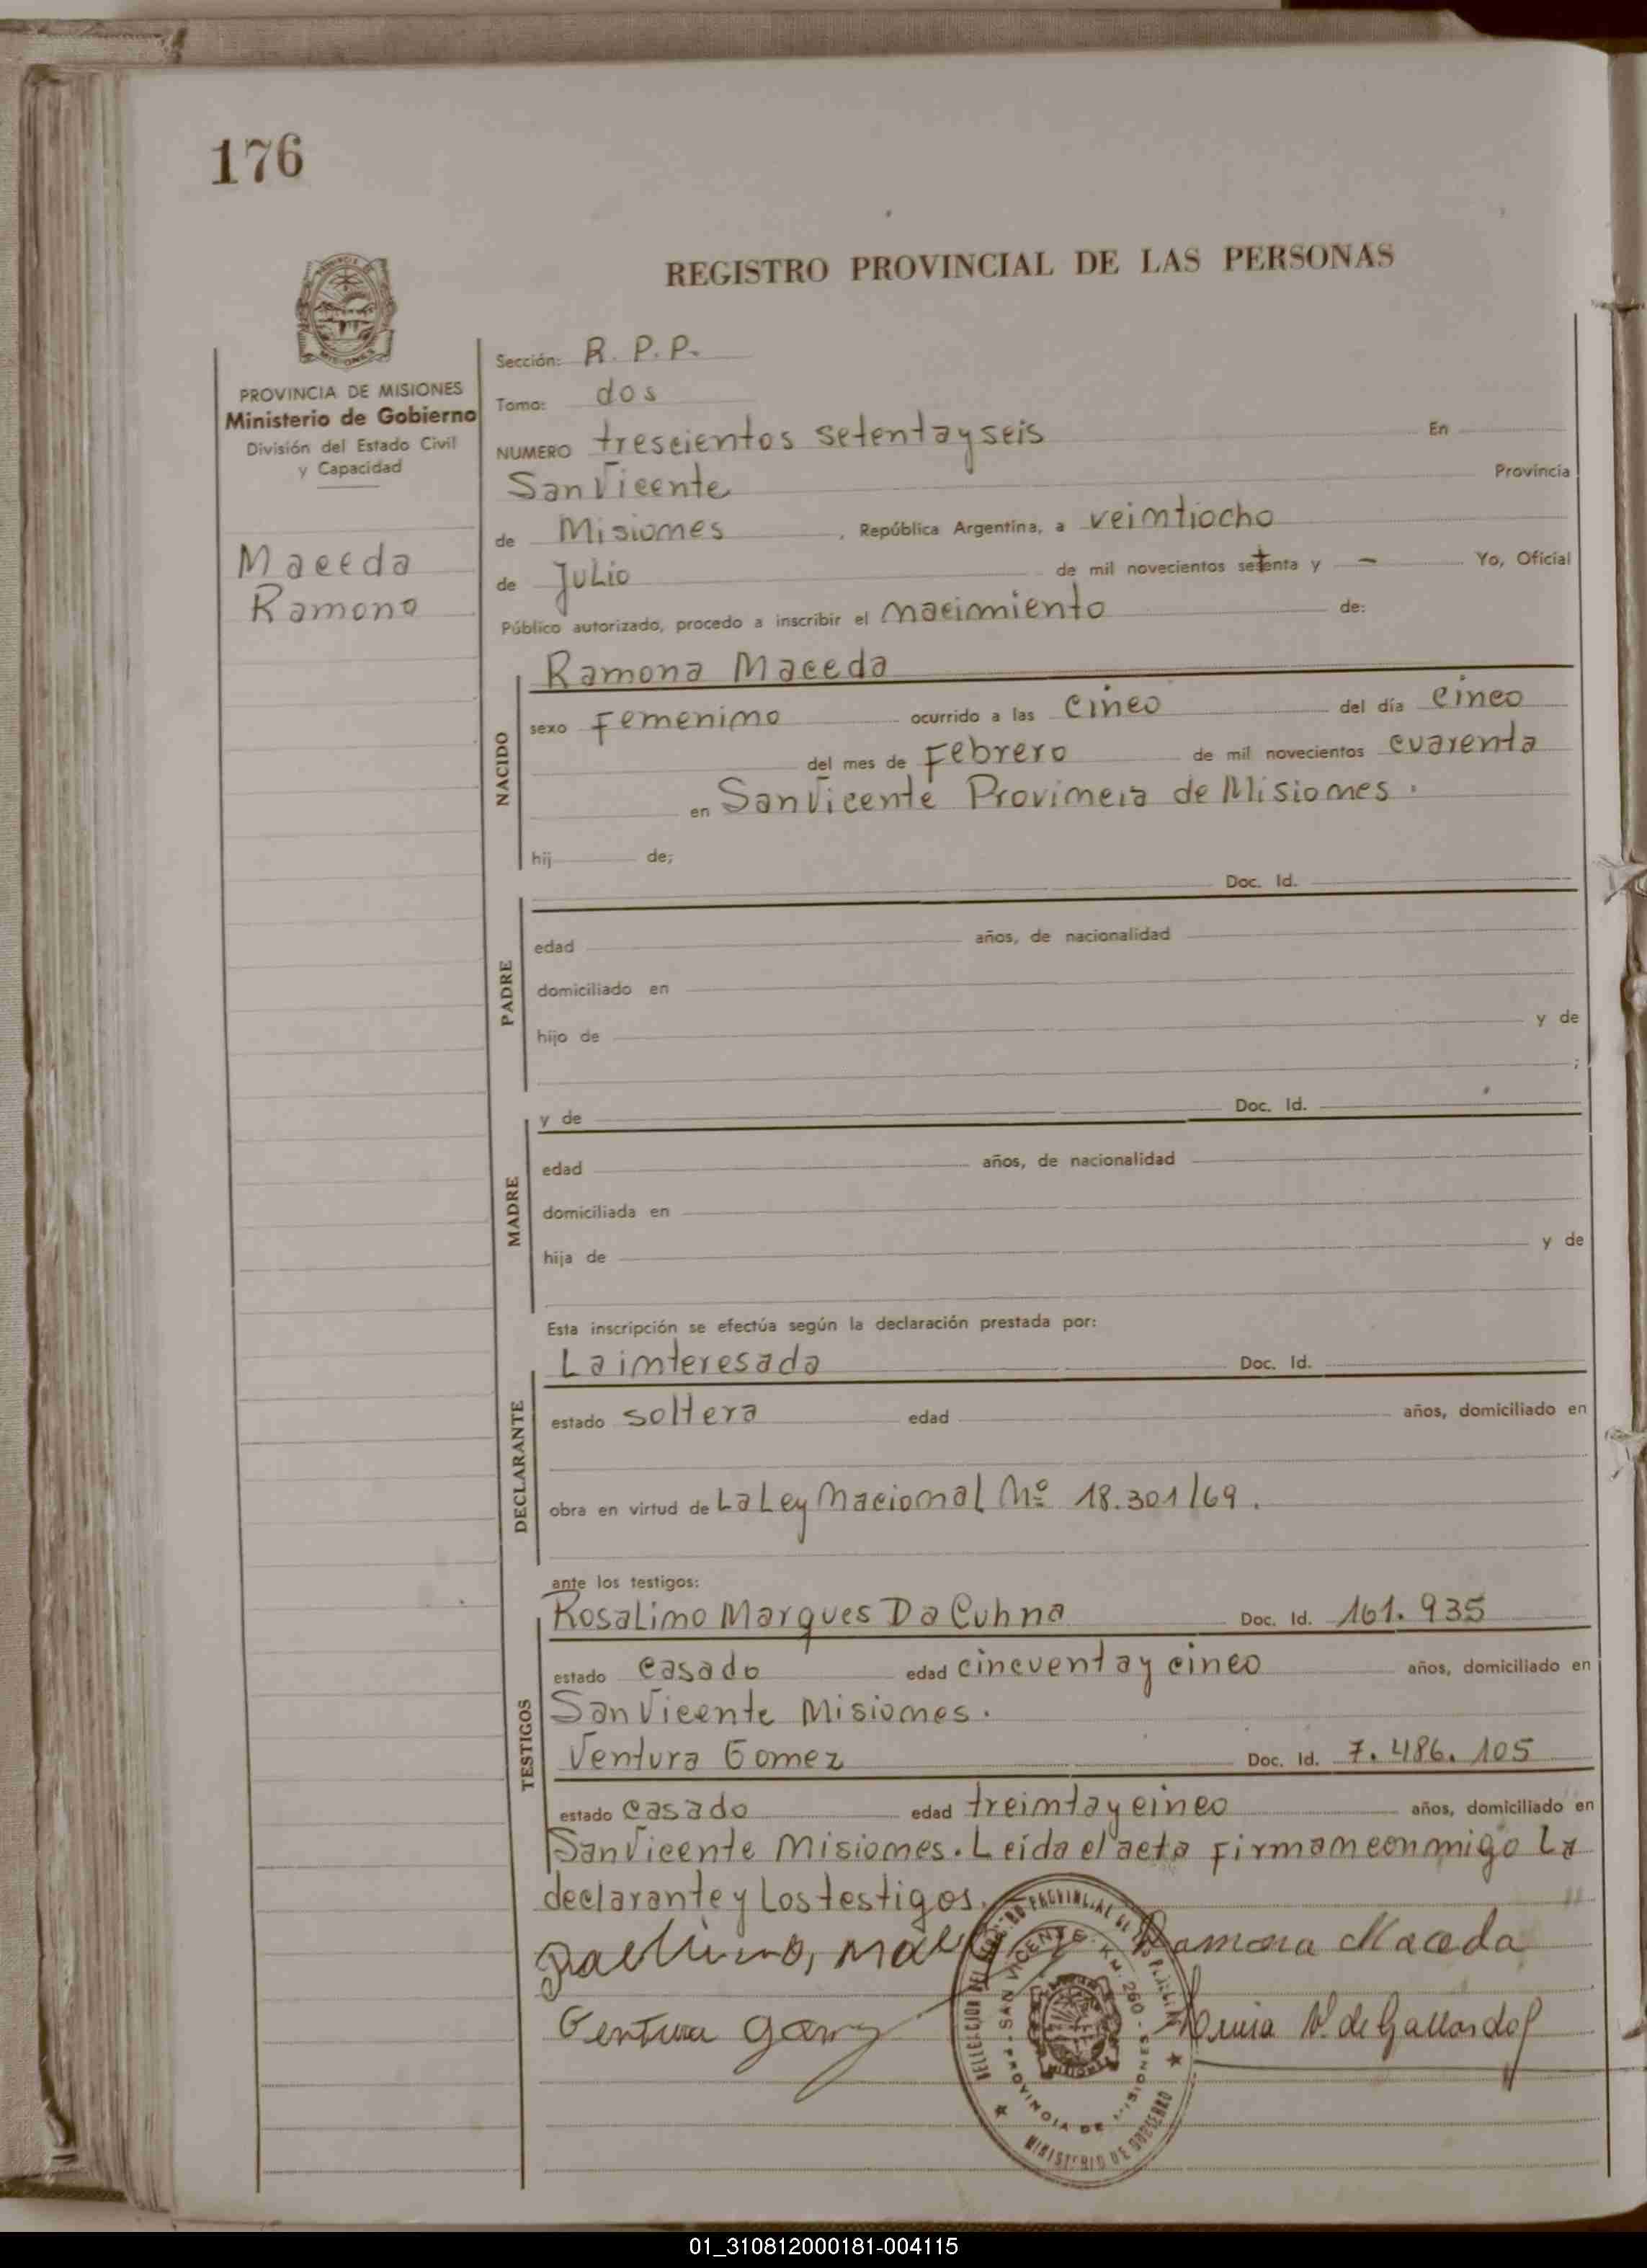 176
REGISTRO PROVINCIAL DE LAS PERSONAS
PROVINCIA DE MISIONES
Ministerio de Gobierno
División del Estado Civil
y Capacidad
Maceda
Ramona
Sección: R. P. P.
Tomo: dos
NUMERO trescientos setenta y seis En
San Vicente Provincia
de Misiones, República Argentina, a veintiocho
de Julio de mil novecientos setenta y — Yo, Oficial
Público autorizado, procedo a inscribir el nacimiento de:
NACIDO
Ramona Maceda
sexo Femenino ocurrido a las cinco del día cinco
del mes de Febrero de mil novecientos cuarenta
en San Vicente Provincia de Misiones.
hij de;
PADRE
Doc. Id.
edad años, de nacionalidad
domiciliado en
hijo de y de
;
MADRE
y de Doc. Id.
edad años, de nacionalidad
domiciliada en
hija de y de
Esta inscripción se efectúa según la declaración prestada por:
DECLARANTE
La interesada Doc. Id.
estado soltera edad años, domiciliado en
obra en virtud de La Ley Nacional Nº 18.301/69.
ante los testigos:
TESTIGOS
Rosalino Marques Da Cuhna Doc. Id. 161.935
estado casado edad cincuenta y cinco años, domiciliado en
San Vicente Misiones.
Ventura Gomez Doc. Id. 7.486.105
estado casado edad treinta y cinco años, domiciliado en
San Vicente Misiones. Leida el acta firman conmigo La
declarante y Los testigos.
Ramona Maceda
Ventura
de Gallardo
SAN VICENTE - KM. 260 - PROVINCIA DE MISIONES
MINISTERIO DE GOBIERNO
01_310812000181-004115